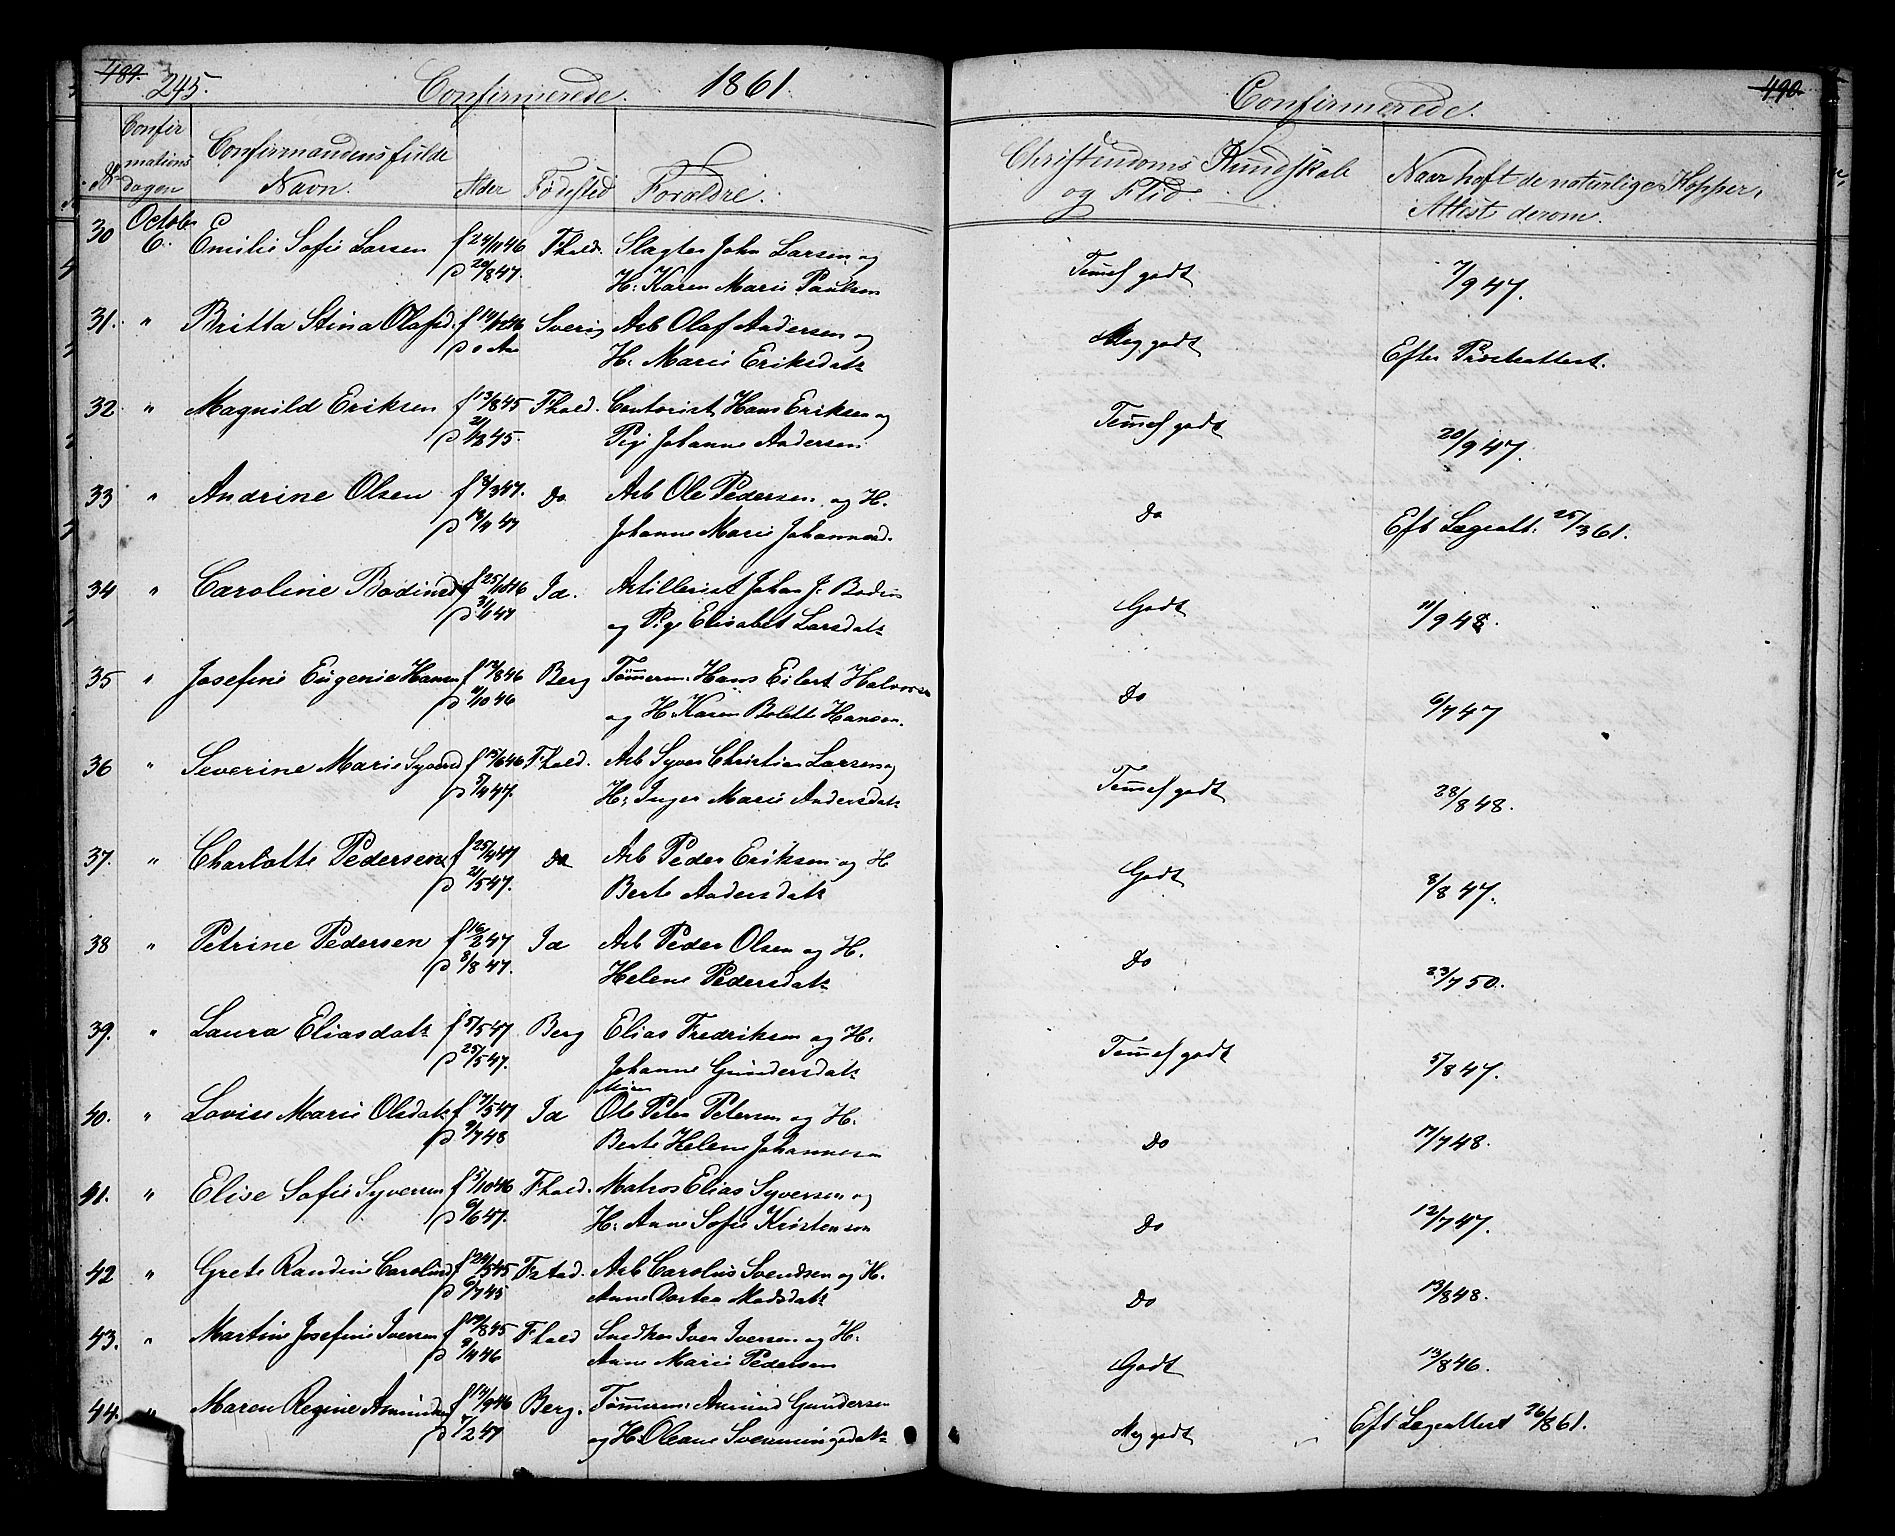 489. 245. Confirmerede. 1861.
No Confirmationsdagen Confirmandens fulde Navn. Alder Fødested Forældre.
30 October 6. Emilie Sofie Larsen f 24/11 46 Fhald. Slagter John Larsen og
p 20/8 47. H. Karen Marie Paulsen
31. " Britta Stina Olafsd. Sverig Arb Olaf Andersen og
H. Marie Eriksdatr
32. " Magnild Eriksen f 13/8 45 Fhald. Contorist Hans Eriksen og
Pige Johanne Andersen
33 " Andrine Olsen f 3/3 47. Do Arb Ole Pedersen og H.
p 18/4 47 Johanne Marie Johannesd.
34 " Caroline Bodinsd f 25/10 46 Id. Artillerist Johan J. Bodin
og Pige Elisabet Larsdatr
35 " Josefine Eugenie Hansen f 13/8 46 Berg Tømmerm. Hans Eilert Halvorsen
p 11/10 46 og H. Karen Bolette Hansen.
36 " Severine Marie Syversd f 15/6 46 Fhald. Arb Syver Christian Larsen og
p 5/4 47. H. Inger Marie Andersdatr
37. " Charlotte Pedersen f 25/4 47 do Arb Peder Eriksen og H
p 21/5 47. Berte Andersdatr
38 " Petrine Pedersen f 16/2 47 Id Arb Peder Olsen og H.
p 8/8 47. Helene Pedersdatr
39. " Laura Eliasdatr f 5/5 47 Berg Elias Fredriksen og H.
p 25/5 47. Johanne Gundersdatr
40. " Lovise Marie Olsdatr f 17/5 47 Id Ole Peter Petersen og H.
p 9/7 48 Berte Helene Johannesen
41. " Elise Sofie Syversen f 5/10 46 Fhald. Matros Elias Syversen og
p 6/6 47. H. Anne Sofie Kristensen
42 " Grete Randine Carolusd f 24/5 45 Arb Carolus Svendsen og H.
p 6/7 45 Anne Dortea Madsdatr
43. " Martine Josefine Iversen f 19/8 45 Fhald Snedker Iver Iversen og H.
p 9/4 46 Anne Marie Pedersen
44. " Maren Regine f 14/9 46 Berg. Tømmerm. Amund Gundersen
p 7/2 47 og H. Oleane Svenningsdatr
Confirmerede. 490.
Christendoms Kundskab og Flid. Naar haft de naturlige Kopper, Attest derom.
Temel godt 7/9 47.
Meg godt Efter Præsteattest.
Temel godt 20/9 47.
Do Eft Lægeatt. 25/3 61.
Godt 11/9 48.
Do 6/7 47
Temel godt 28/8 48.
Godt 8/8 47.
Do 23/7 50.
Temel godt 5/8 47.
Do 17/7 48.
Do 12/7 47.
Do 13/8 48.
Godt 13/8 46.
Meg godt Eft Lægeattest 26/8 61.